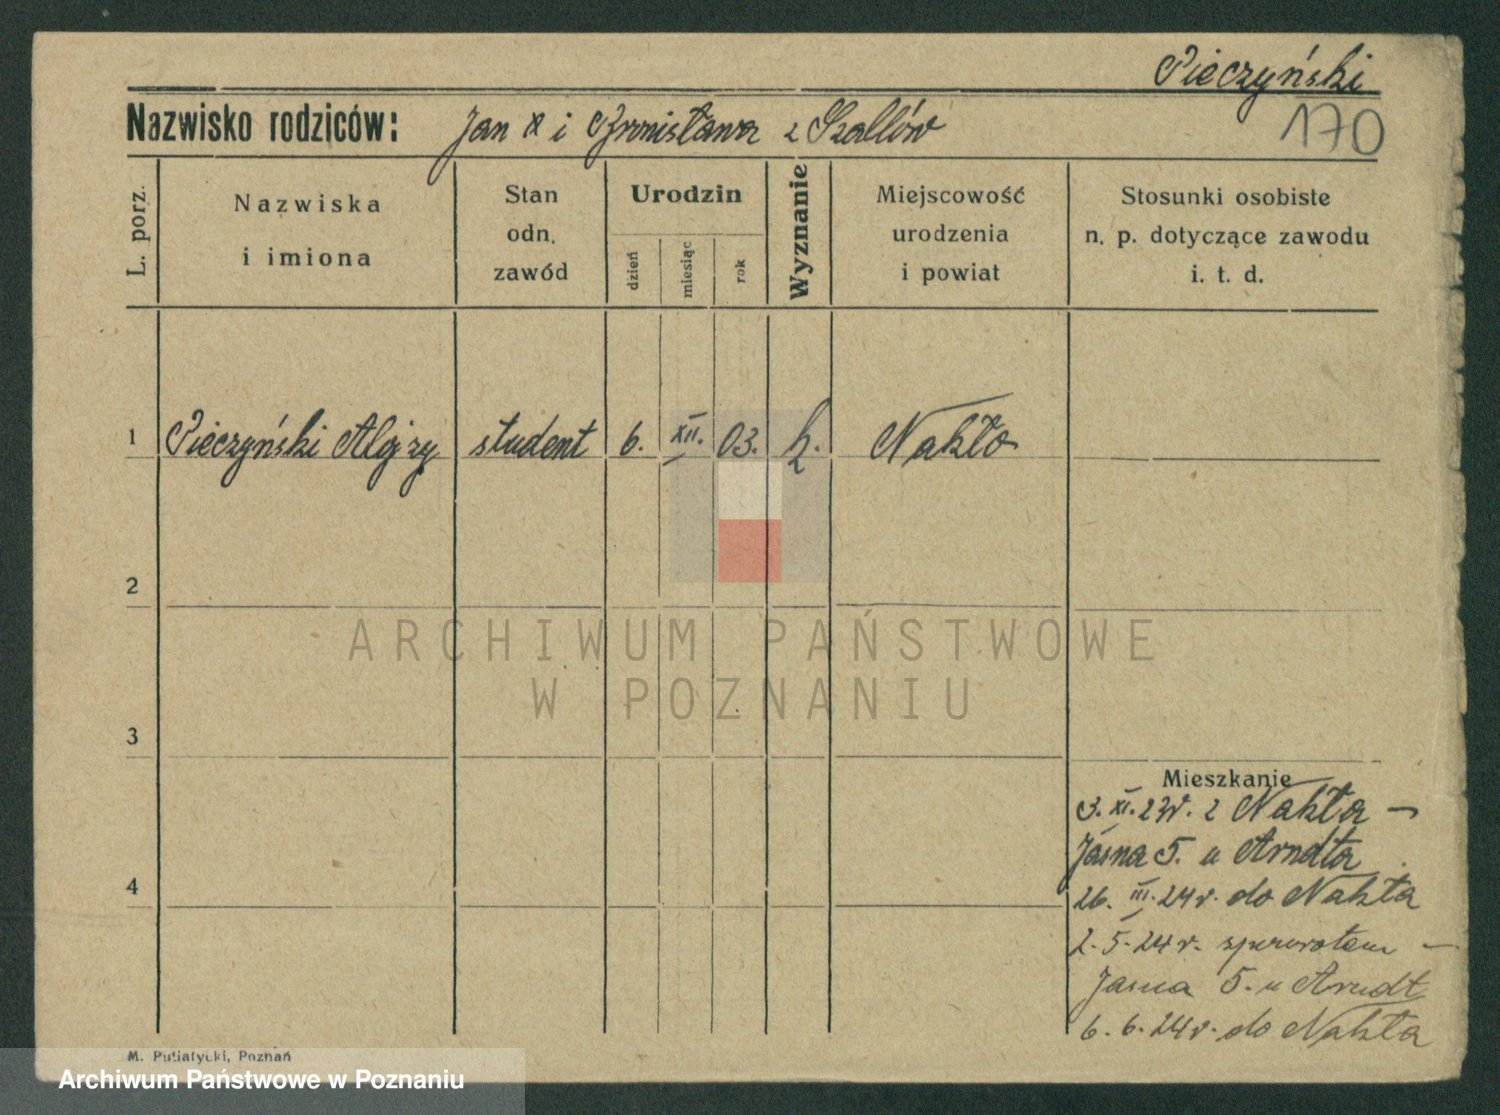 Pieczyński
Nazwisko rodziców: Jan i Bronisława z Szallów
170
L. porz.
Nazwiska
i imiona
Stan
odn.
zawód
Urodzin
dzień
miesiąc
rok
Wyznanie
Miejscowość
urodzenia
i powiat
Stosunki osobiste
n. p. dotyczące zawodu
i. t. d.
1 Pieczyński Alojzy student 6. XII. 03. k. Nakło
2
ARCHIWUM PAŃSTWOWE
W POZNANIU
3
Mieszkanie
3. XI. 23r. z Nakła —
Jasna 5. u Arndta
4
26. III. 24r. do Nakła
2. 5. 24r. spowrotem —
Jasna 5. u Arndt
6. 6. 24r. do Nakła
M. Putiatycki, Poznań
Archiwum Państwowe w Poznaniu